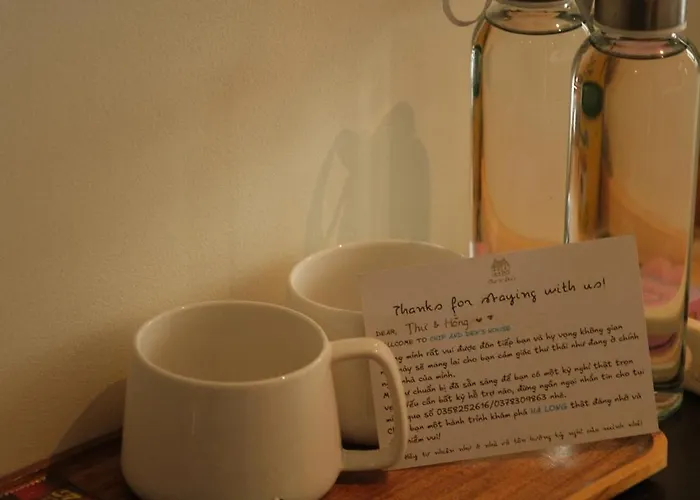 Thanks for staying with us!
DEAR, Thư & Hồng
LCOME TO CHIP AND DEN'S HOUSE
ng mình rất vui được đón tiếp bạn và hy vọng không gian
này sẽ mang lại cho bạn cảm giác thư thái như đang ở chính
nhà của mình.
chuẩn bị đã sẵn sàng để bạn có một kỳ nghỉ thật trọn
Nếu cần bất kỳ hỗ trợ nào, đừng ngần ngại nhắn tin cho tụi
qua số 0358252616/0378309863 nhé.
bạn một hành trình khám phá HẠ LONG thật đáng nhớ và
niềm vui!
tự nhiên như ở nhà và tận hưởng kỳ nghỉ của mình nhé!